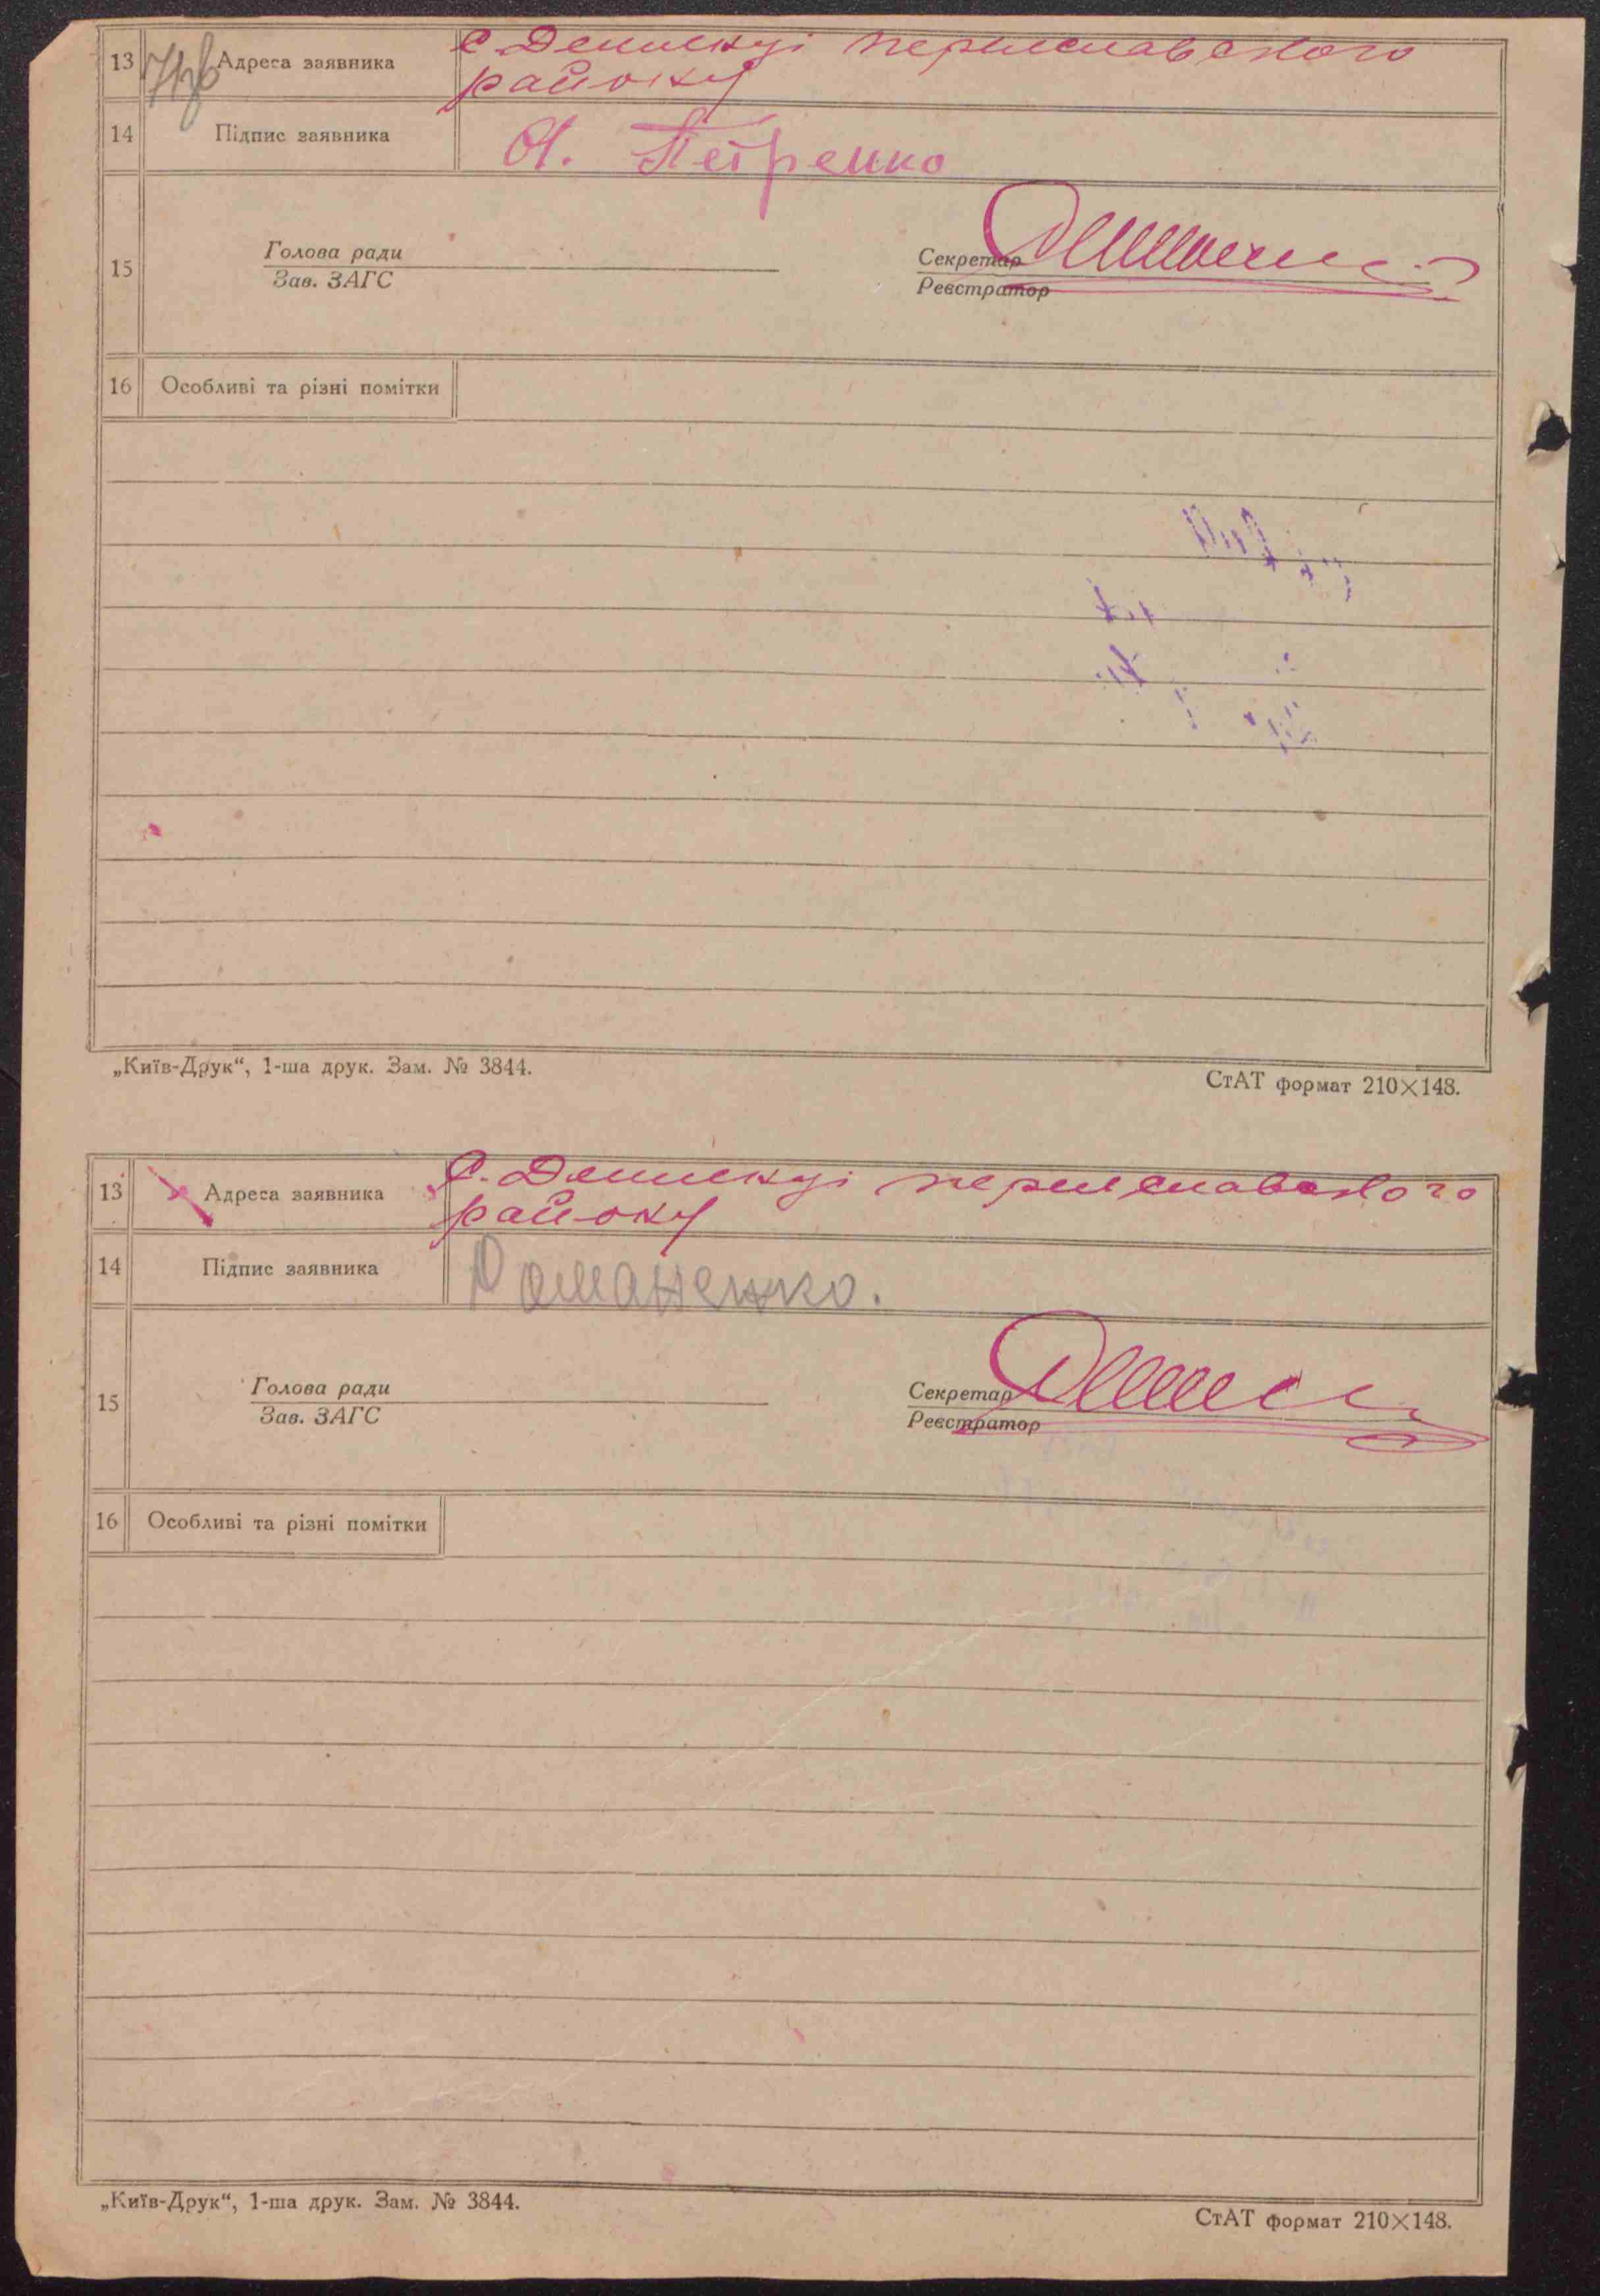 13 Адреса заявника с. Дениски переяславського
району
14 Підпис заявника О. Петренко
15 Голова ради
Зав. ЗАГС
Секретар
Реєстратор
16 Особливі та різні помітки
„Київ-Друк“, 1-ша друк. Зам. № 3844.
СтАТ формат 210×148.
13 Адреса заявника с. Дениски переяславського
району
14 Підпис заявника Романенко.
15 Голова ради
Зав. ЗАГС
Секретар
Реєстратор
16 Особливі та різні помітки
„Київ-Друк“, 1-ша друк. Зам. № 3844.
СтАТ формат 210×148.